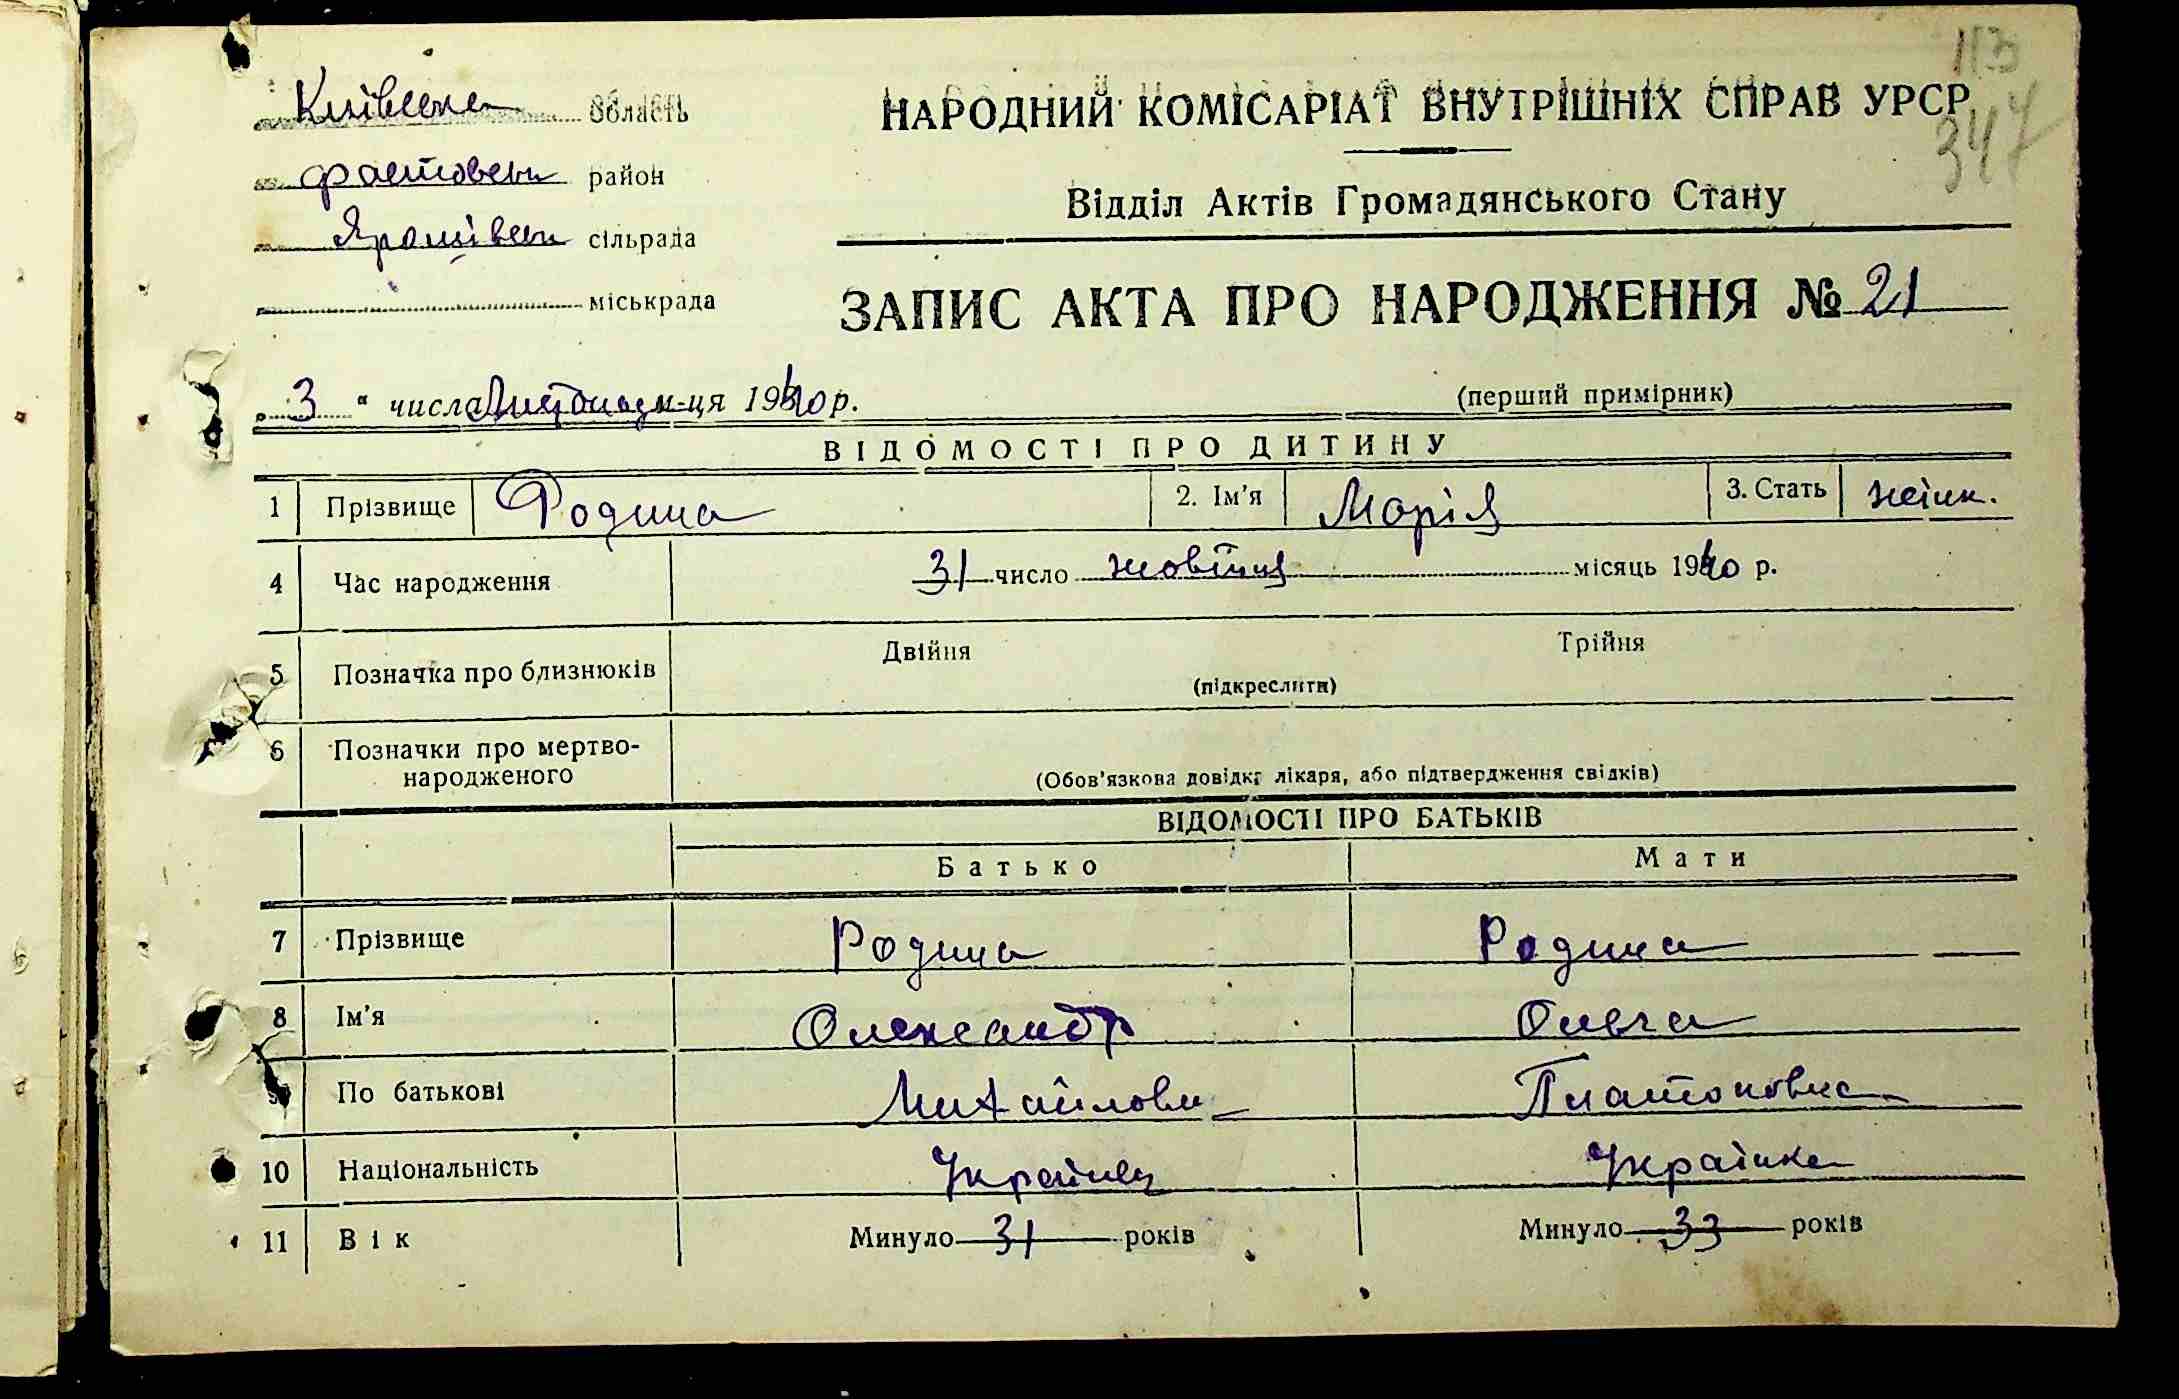 113
347
Київська область
Фастовськ район
Яроповськ сільрада
міськрада
НАРОДНИЙ КОМІСАРІАТ ВНУТРІШНІХ СПРАВ УРСР
Відділ Актів Громадянського Стану
ЗАПИС АКТА ПРО НАРОДЖЕННЯ № 21
„ 3 “ числа Листопад м-ця 1940 р.
(перший примірник)
ВІДОМОСТІ ПРО ДИТИНУ
1 Прізвище Родина 2. Ім'я Марія 3. Стать жінк.
4 Час народження 31 число жовтня місяць 1940 р.
5 Позначка про близнюків Двійня Трійня
(підкреслити)
6 Позначки про мертво-
народженого
(Обов'язкова довідка лікаря, або підтвердження свідків)
ВІДОМОСТІ ПРО БАТЬКІВ
Батько Мати
7 Прізвище Родина Родина
8 Ім'я Олександр Ольга
9 По батькові Михайлови Платоновна
10 Національність Українец Українка
11 Вік Минуло 31 років Минуло 33 років